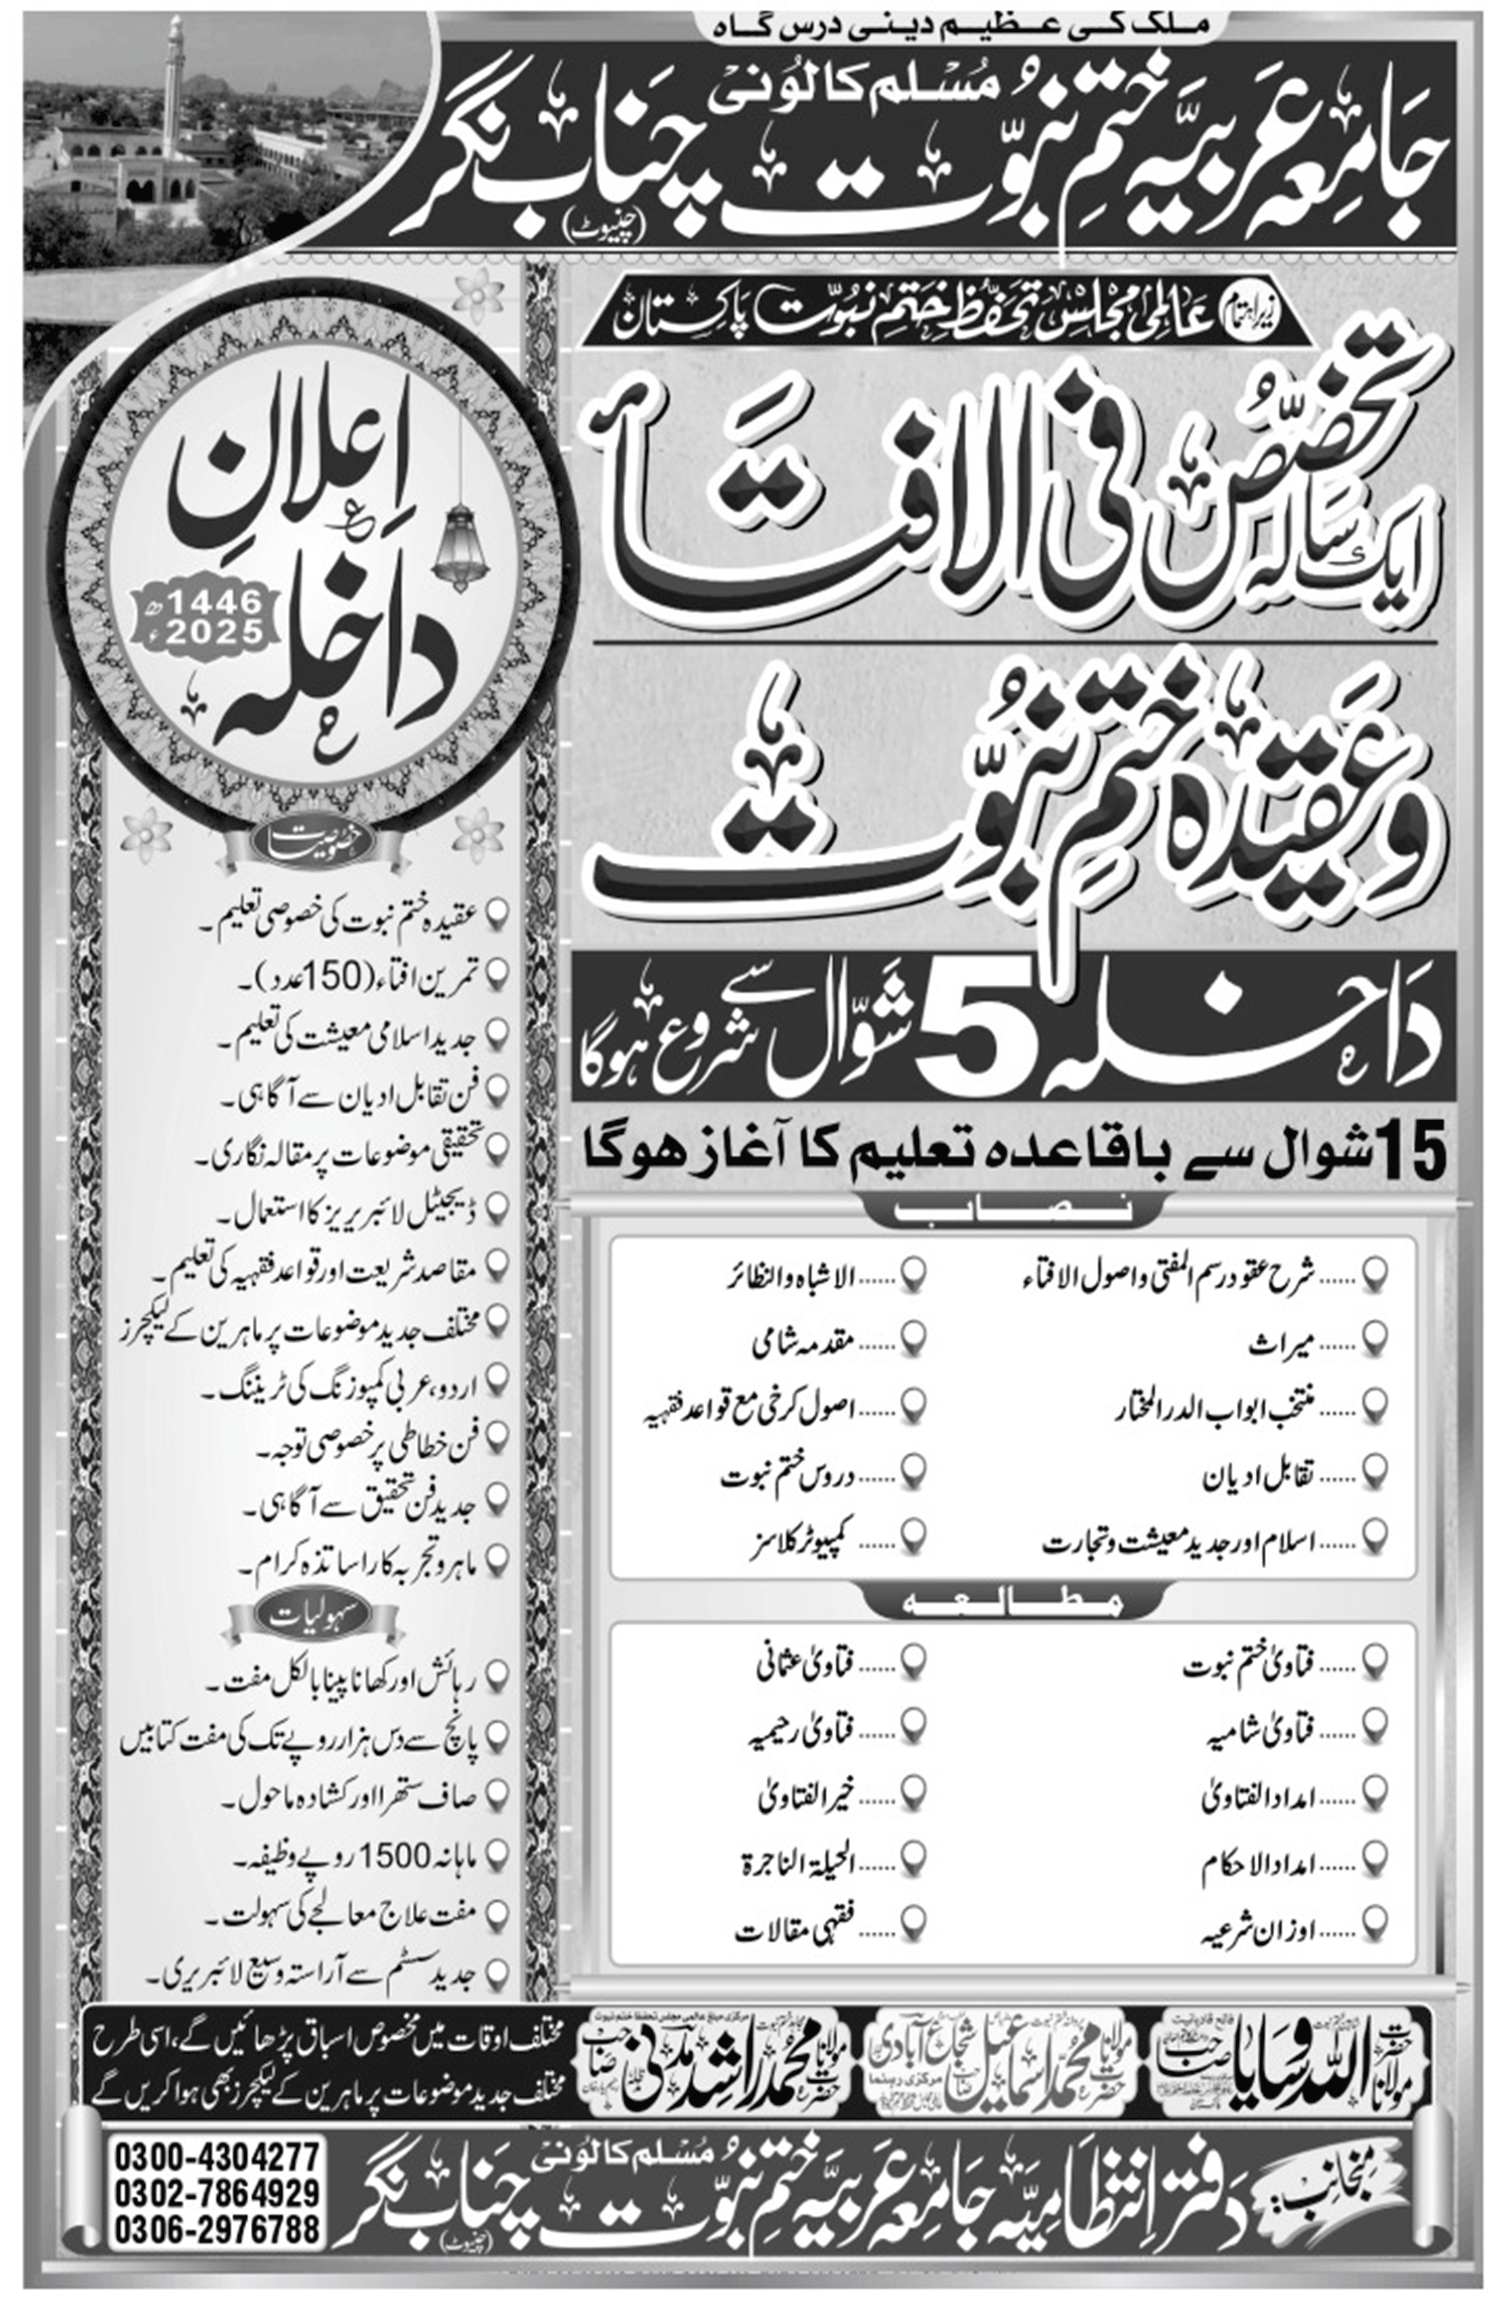 ملک کی عظیم دینی درس گاہ
جامعہ عربیہ ختم نبوت مسلم کالونی چناب نگر
(چنیوٹ)
زیر اہتمام عالمی مجلس تحفظ ختم نبوت پاکستان
اعلانِ داخلہ
1446ھ
2025ء
ایک سالہ تخصص فی الافتاء
و عقیدہ ختم نبوت
داخلہ 5 شوال سے شروع ہوگا
15 شوال سے باقاعدہ تعلیم کا آغاز ہوگا
نصاب
شرح عقود رسم المفتی و اصول الافتاء
الاشباہ والنظائر
میراث
مقدمہ شامی
منتخب ابواب الدر المختار
اصول کرخی مع قواعد فقہیہ
تقابل ادیان
دروس ختم نبوت
اسلام اور جدید معیشت و تجارت
کمپیوٹر کلاسز
مطالعہ
فتاویٰ ختم نبوت
فتاویٰ عثمانی
فتاویٰ شامیہ
فتاویٰ رحیمیہ
امداد الفتاویٰ
خیر الفتاویٰ
امداد الاحکام
الحیلۃ الناجزۃ
اوزان شرعیہ
فقہی مقالات
خصوصیات
عقیدہ ختم نبوت کی خصوصی تعلیم۔
تمرین افتاء (150 عدد)۔
جدید اسلامی معیشت کی تعلیم۔
فن تقابل ادیان سے آگاہی۔
تحقیقی موضوعات پر مقالہ نگاری۔
ڈیجیٹل لائبریریز کا استعمال۔
مقاصد شریعت اور قواعد فقہیہ کی تعلیم۔
مختلف جدید موضوعات پر ماہرین کے لیکچرز
اردو، عربی کمپوزنگ کی ٹریننگ۔
فن خطاطی پر خصوصی توجہ۔
جدید فن تحقیق سے آگاہی۔
ماہر و تجربہ کار اساتذہ کرام۔
سہولیات
رہائش اور کھانا پینا بالکل مفت۔
پانچ سے دس ہزار روپے تک کی مفت کتابیں
صاف ستھرا اور کشادہ ماحول۔
ماہانہ 1500 روپے وظیفہ۔
مفت علاج معالجے کی سہولت۔
جدید سسٹم سے آراستہ وسیع لائبریری۔
حضرت مولانا اللہ وسایا صاحب
حضرت مولانا محمد اسماعیل شجاع آبادی
مرکزی رہنما
مرکزی مبلغ عالمی مجلس تحفظ ختم نبوت
حضرت مولانا محمد راشد مدنی صاحب
مختلف اوقات میں مخصوص اسباق پڑھائیں گے، اسی طرح
مختلف جدید موضوعات پر ماہرین کے لیکچرز بھی ہوا کریں گے
منجانب: دفتر انتظامیہ جامعہ عربیہ ختم نبوت مسلم کالونی چناب نگر
(چنیوٹ)
0300-4304277
0302-7864929
0306-2976788